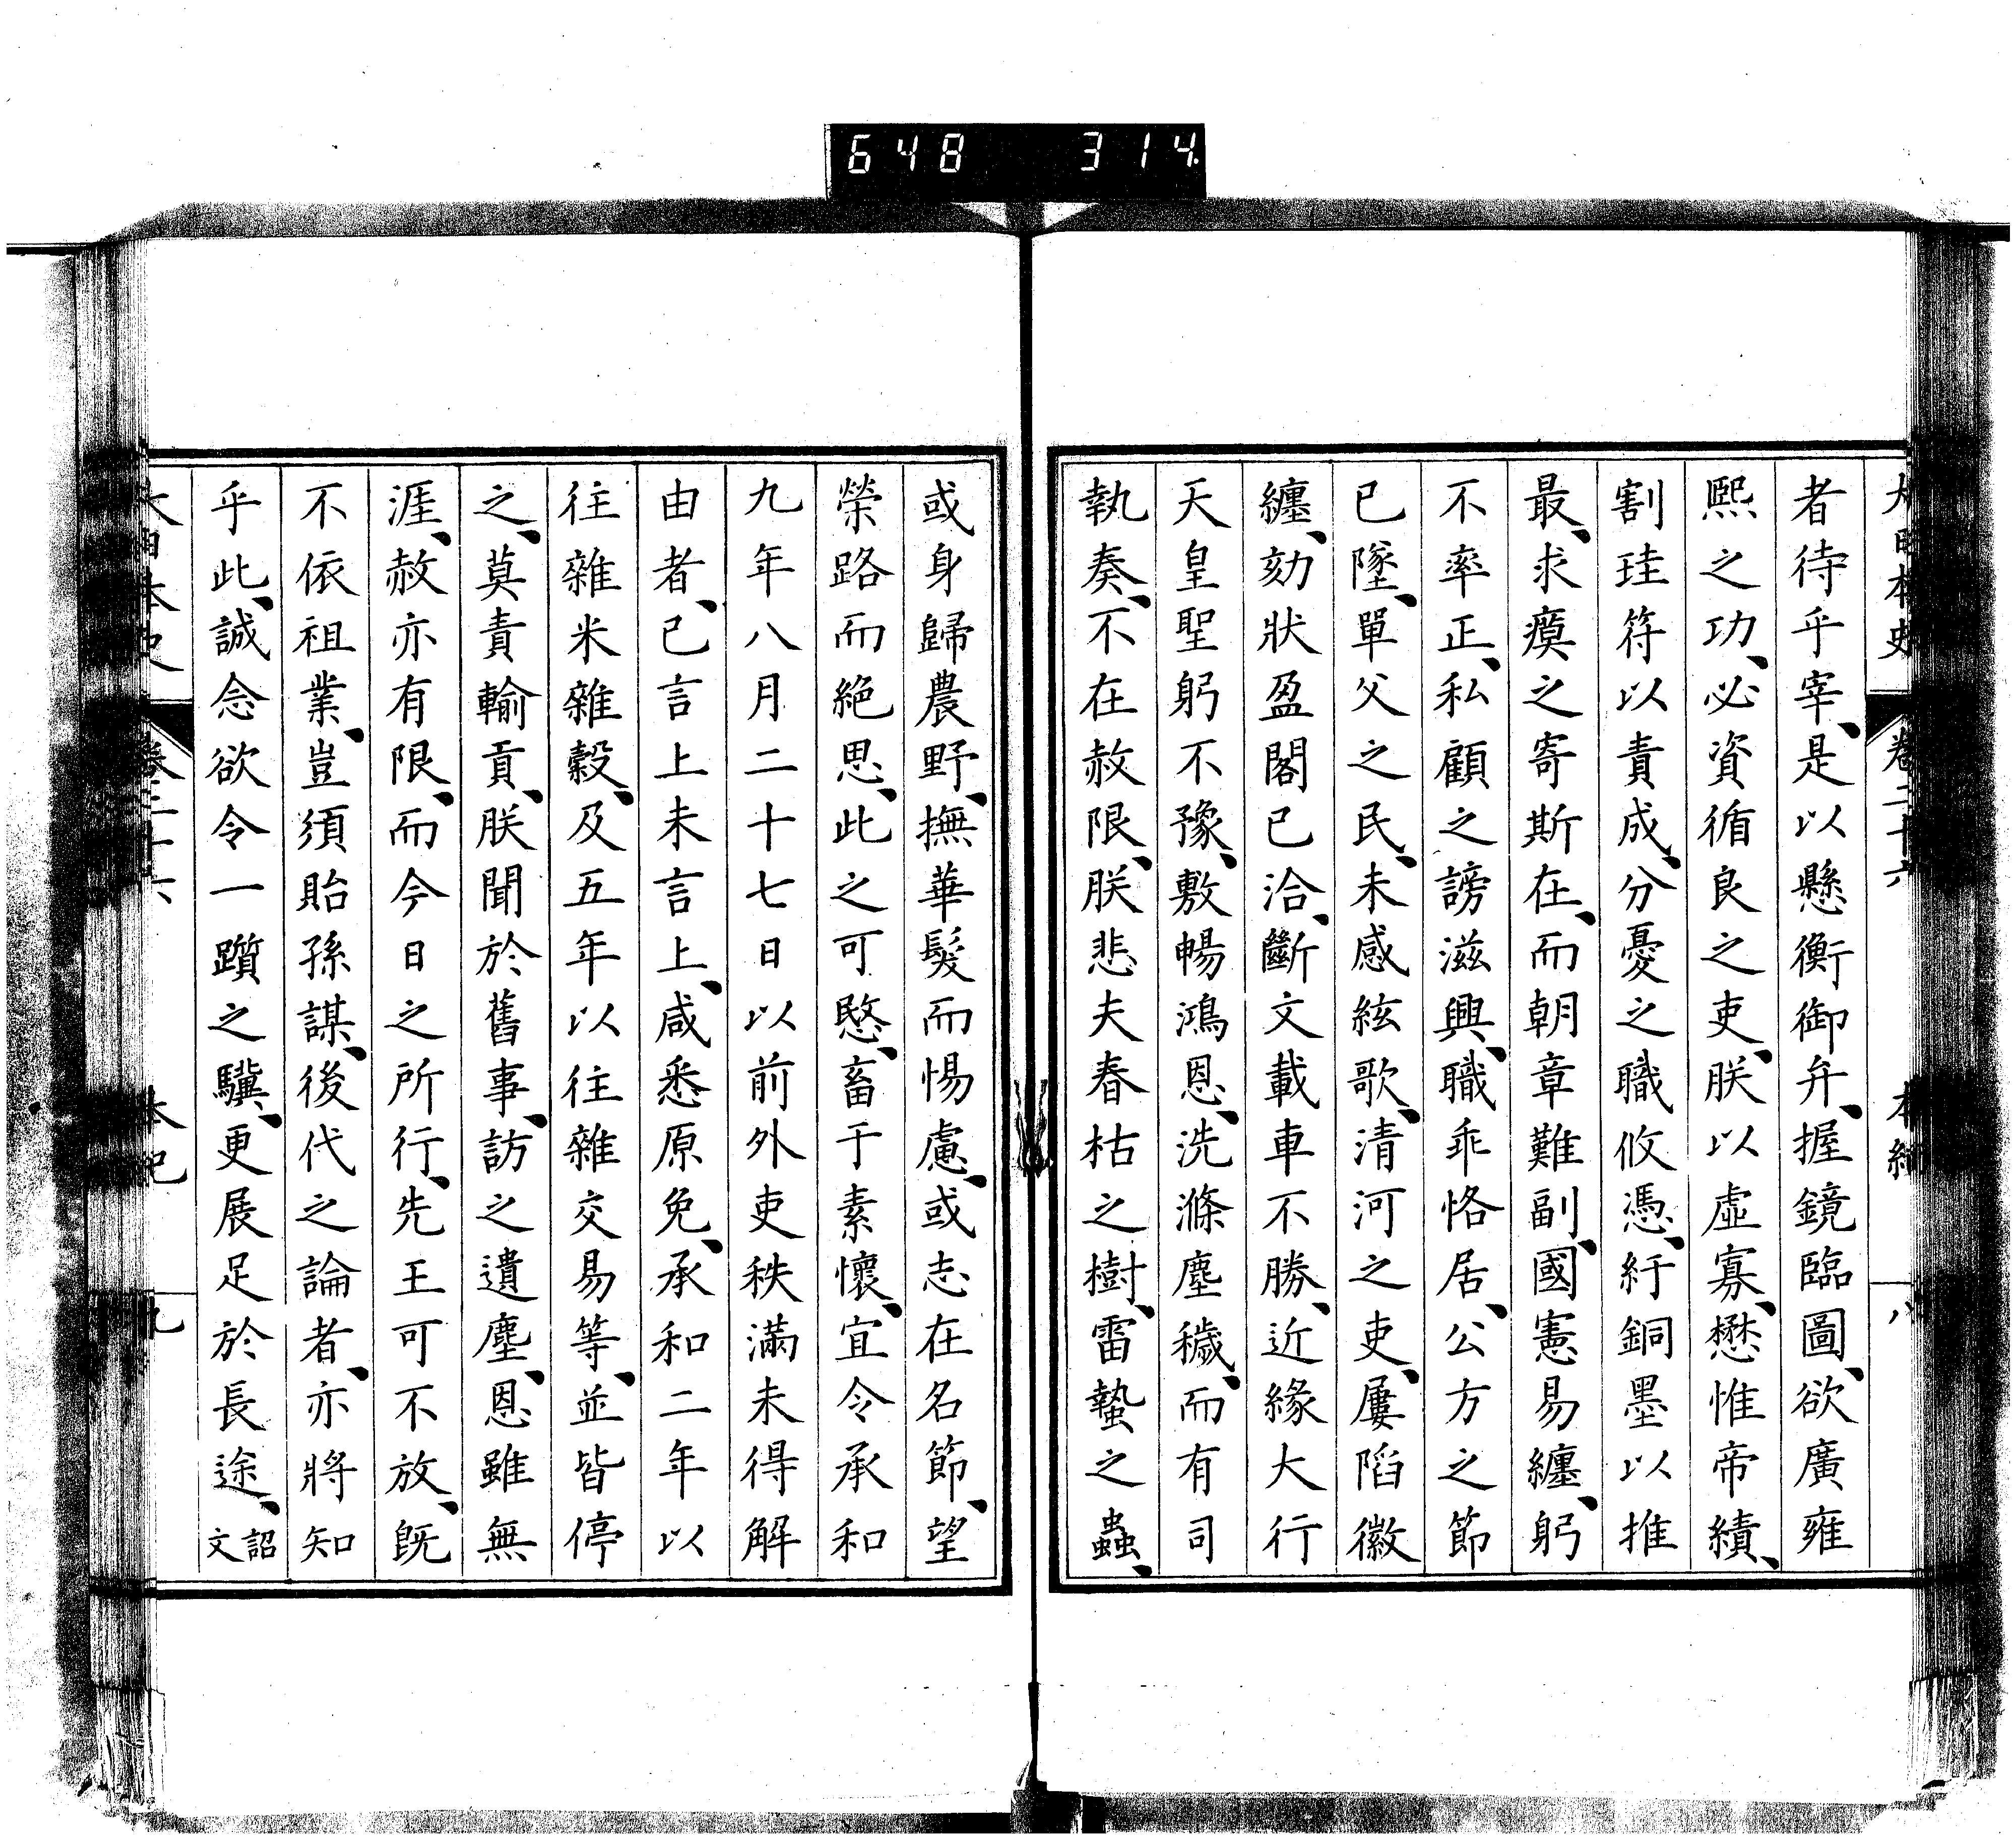 648 314
大日本史 卷二十六 本紀 八
者待乎宰、是以懸衡御弁、握鏡臨圖、欲廣雍
熙之功、必資循良之吏、朕以虛寡、懋惟帝績、
割珪符以責成、分憂之職攸憑、紆銅墨以推
最、求瘼之寄斯在、而朝章難副、國憲易纏、躬
不率正、私顧之謗滋興、職乖恪居、公方之節
已墜、單父之民、未感絃歌、清河之吏、屢陷徽
纏、劾狀盈閣已洽、斷文載車不勝、近緣大行
天皇聖躬不豫、敷暢鴻恩、洗滌塵穢、而有司
執奏、不在赦限、朕悲夫春枯之樹、雷蟄之蟲、
或身歸農野、撫華髮而惕慮、或志在名節、望
榮路而絕思、此之可愍、畜于素懷、宜令承和
九年八月二十七日以前外吏秩滿未得解
由者、已言上未言上、咸悉原免、承和二年以
往雜米雜穀、及五年以往雜交易等、並皆停
之、莫責輸貢、朕聞於舊事、訪之遺塵、恩雖無
涯、赦亦有限、而今日之所行、先王可不放、旣
不依祖業、豈須貽孫謀、後代之論者、亦將知
乎此、誠念欲令一躓之驥、更展足於長途、詔文
大日本史 卷二十六 本紀 九